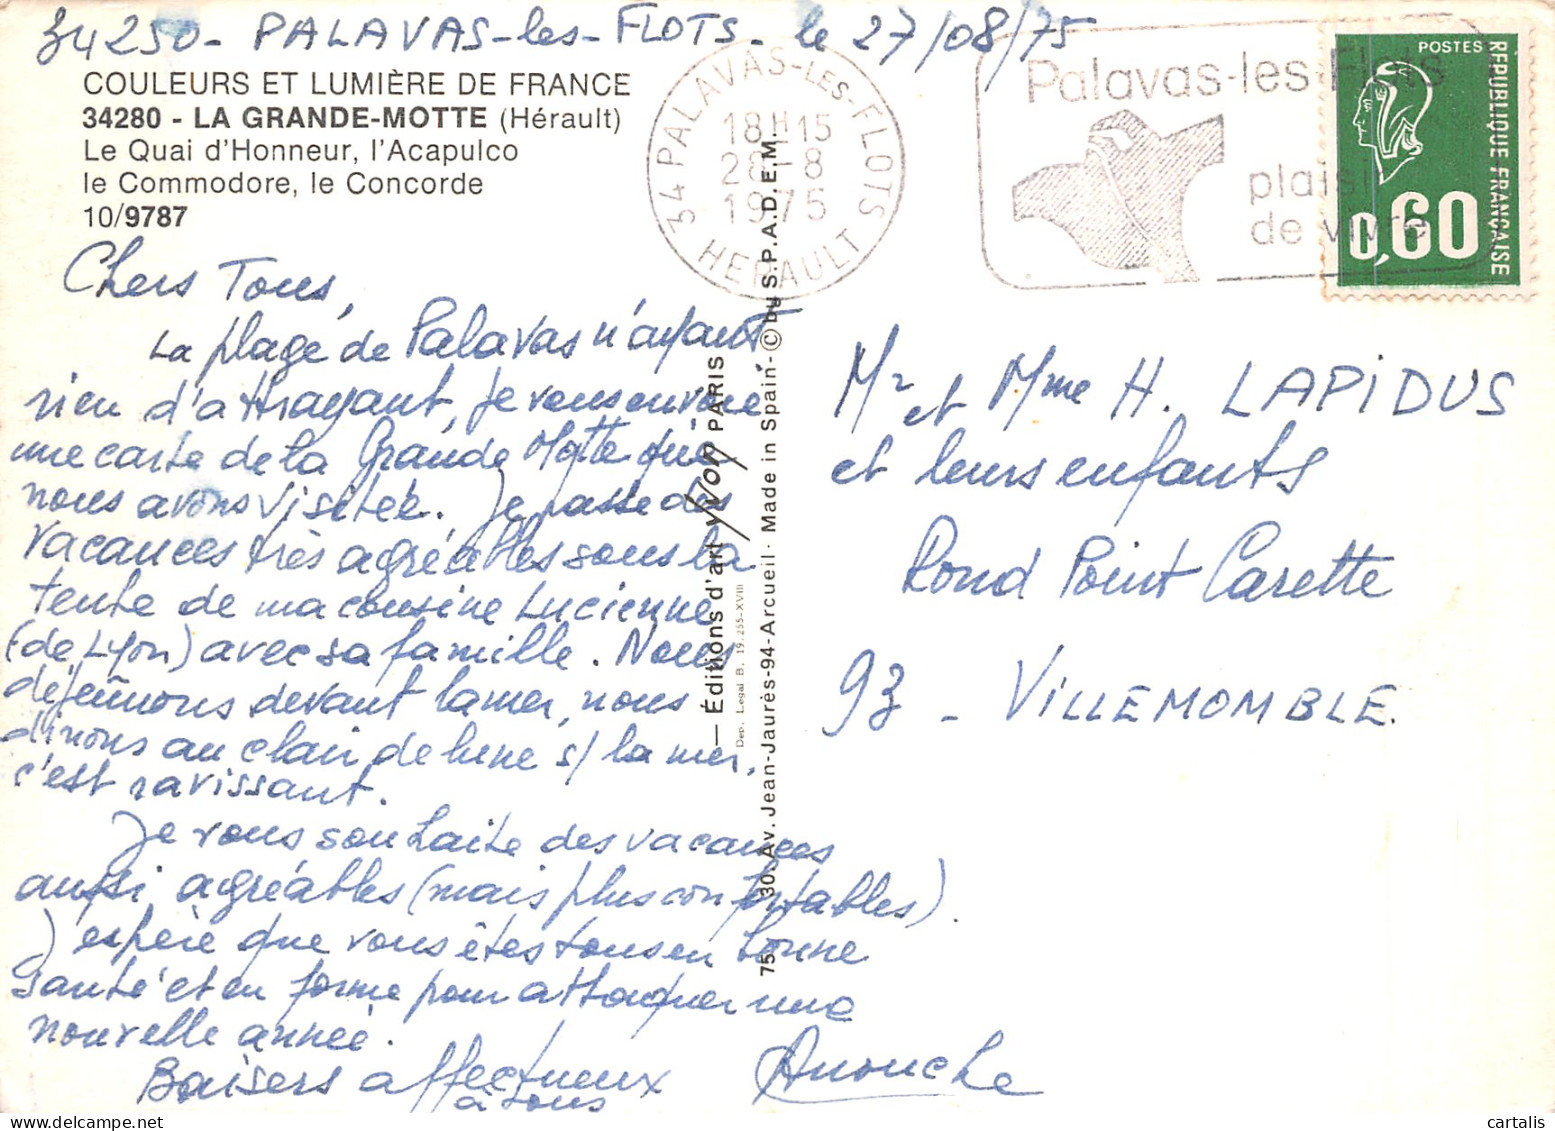 34250 - PALAVAS-les-FLOTS - le 27/08/75
COULEURS ET LUMIÈRE DE FRANCE
34280 - LA GRANDE-MOTTE (Hérault)
Le Quai d'Honneur, l'Acapulco
le Commodore, le Concorde
10/9787
Chers Tous,
La plage de Palavas n'ayant
rien d'attrayant, je vous envoie
une carte de la Grande Motte que
nous avons visitée. Je passe des
vacances très agréables sous la
tente de ma cousine Lucienne
(de Lyon) avec sa famille. Nous
déjeûnons devant la mer, nous
dinons au clair de lune s/ la mer,
c'est ravissant.
Je vous souhaite des vacances
aussi agréables (mais plus confortables).
J'espère que vous êtes tous en bonne
santé et en forme pour attaquer une
nouvelle année.
Baisers affectueux
à tous
Anouche
34 PALAVAS-LES-FLOTS
18H15
28-8
1975
HERAULT
Palavas-les-Flots
plaisir
de vivre
POSTES
RÉPUBLIQUE FRANÇAISE
0,60
— Éditions d'art YVON PARIS
Dep. Legal B. 19.255-XVIII
75 - 30, Av. Jean-Jaurès-94-Arcueil · Made in Spain - © by S.P.A.D.E.M.
Mr et Mme H. LAPIDUS
et leurs enfants
Rond Point Carette
93 - VILLEMOMBLE.
www.delcampe.net
cartalis